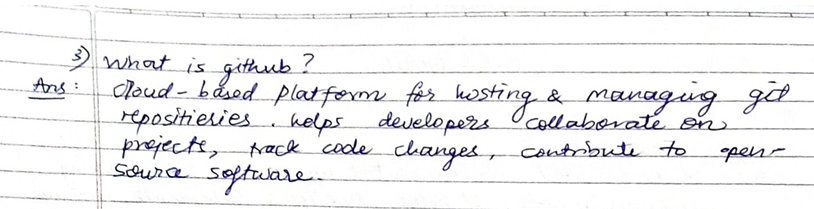 3) What is github?
Ans: Cloud-based platform for hosting & managing git
repositieries. helps developers collaborate on
projects, track code changes, contribute to open-
source software.